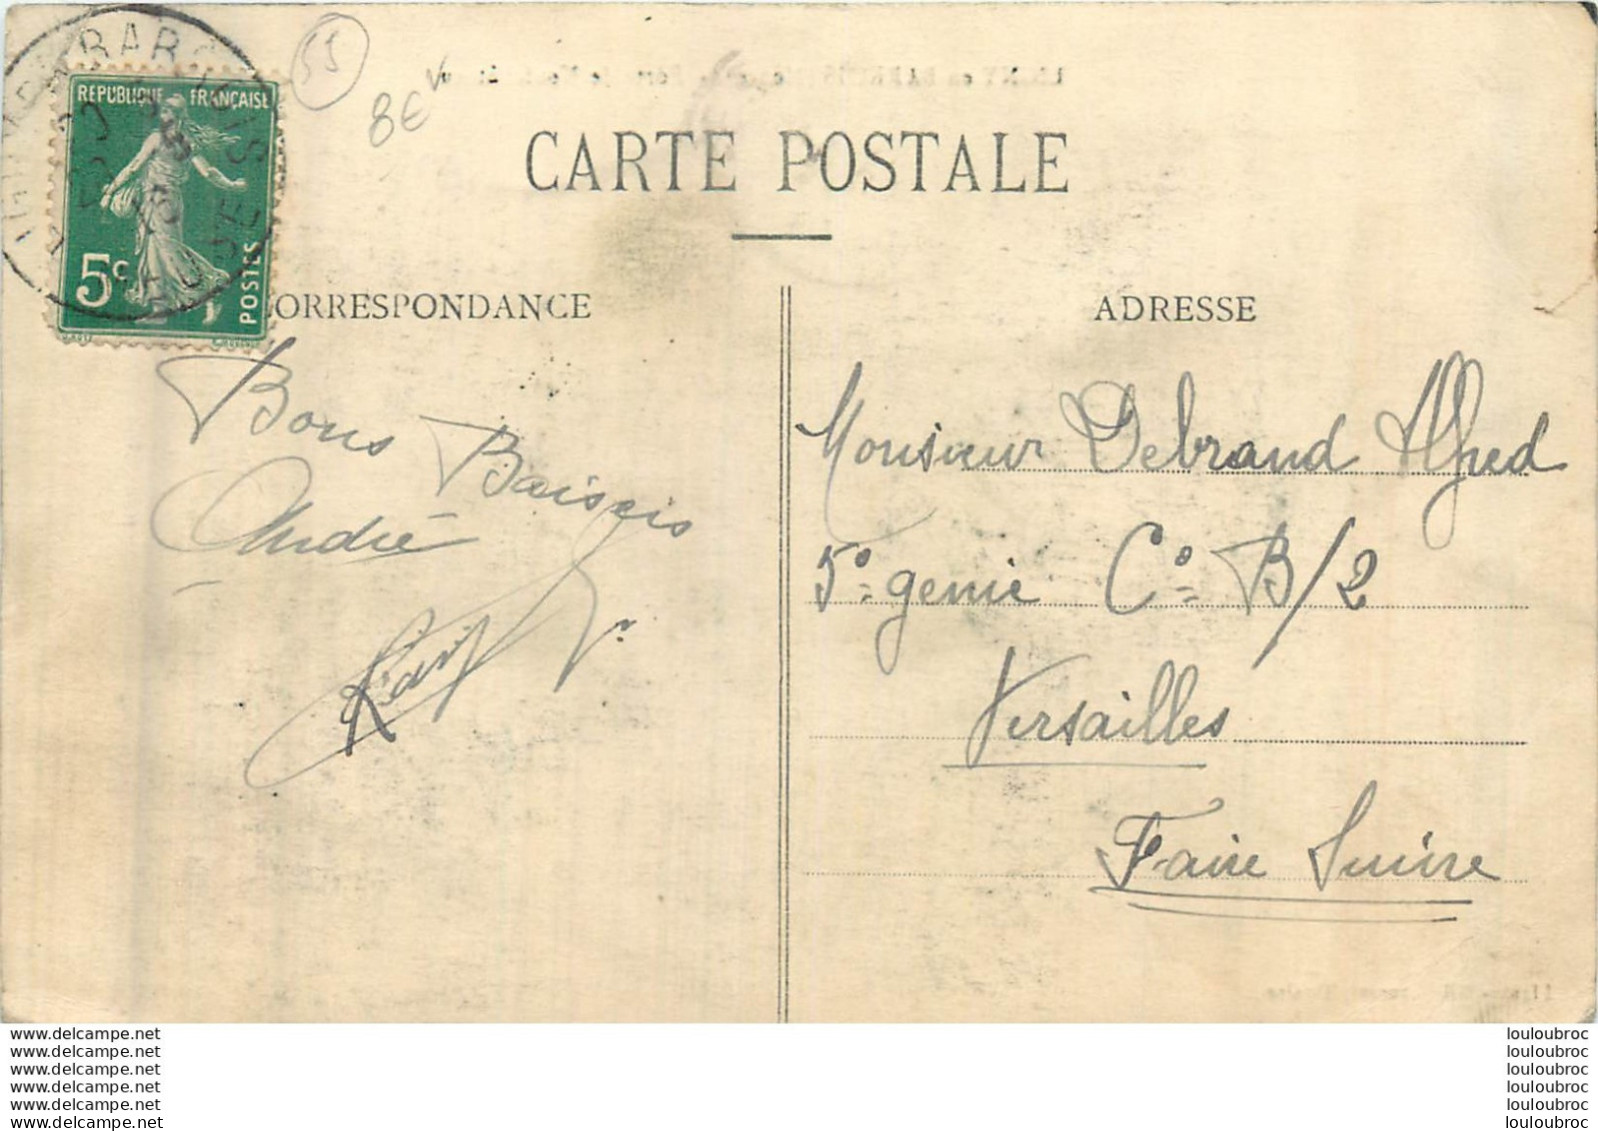 55
8€
REPUBLIQUE FRANÇAISE
5c
POSTES
CARTE POSTALE
CORRESPONDANCE
ADRESSE
Bons Baisers
André
Monsieur Debrand Alfred
5e genie Cie B/2
Versailles
Faire Suivre
www.delcampe.net
www.delcampe.net
www.delcampe.net
www.delcampe.net
www.delcampe.net
www.delcampe.net
louloubroc
louloubroc
louloubroc
louloubroc
louloubroc
louloubroc